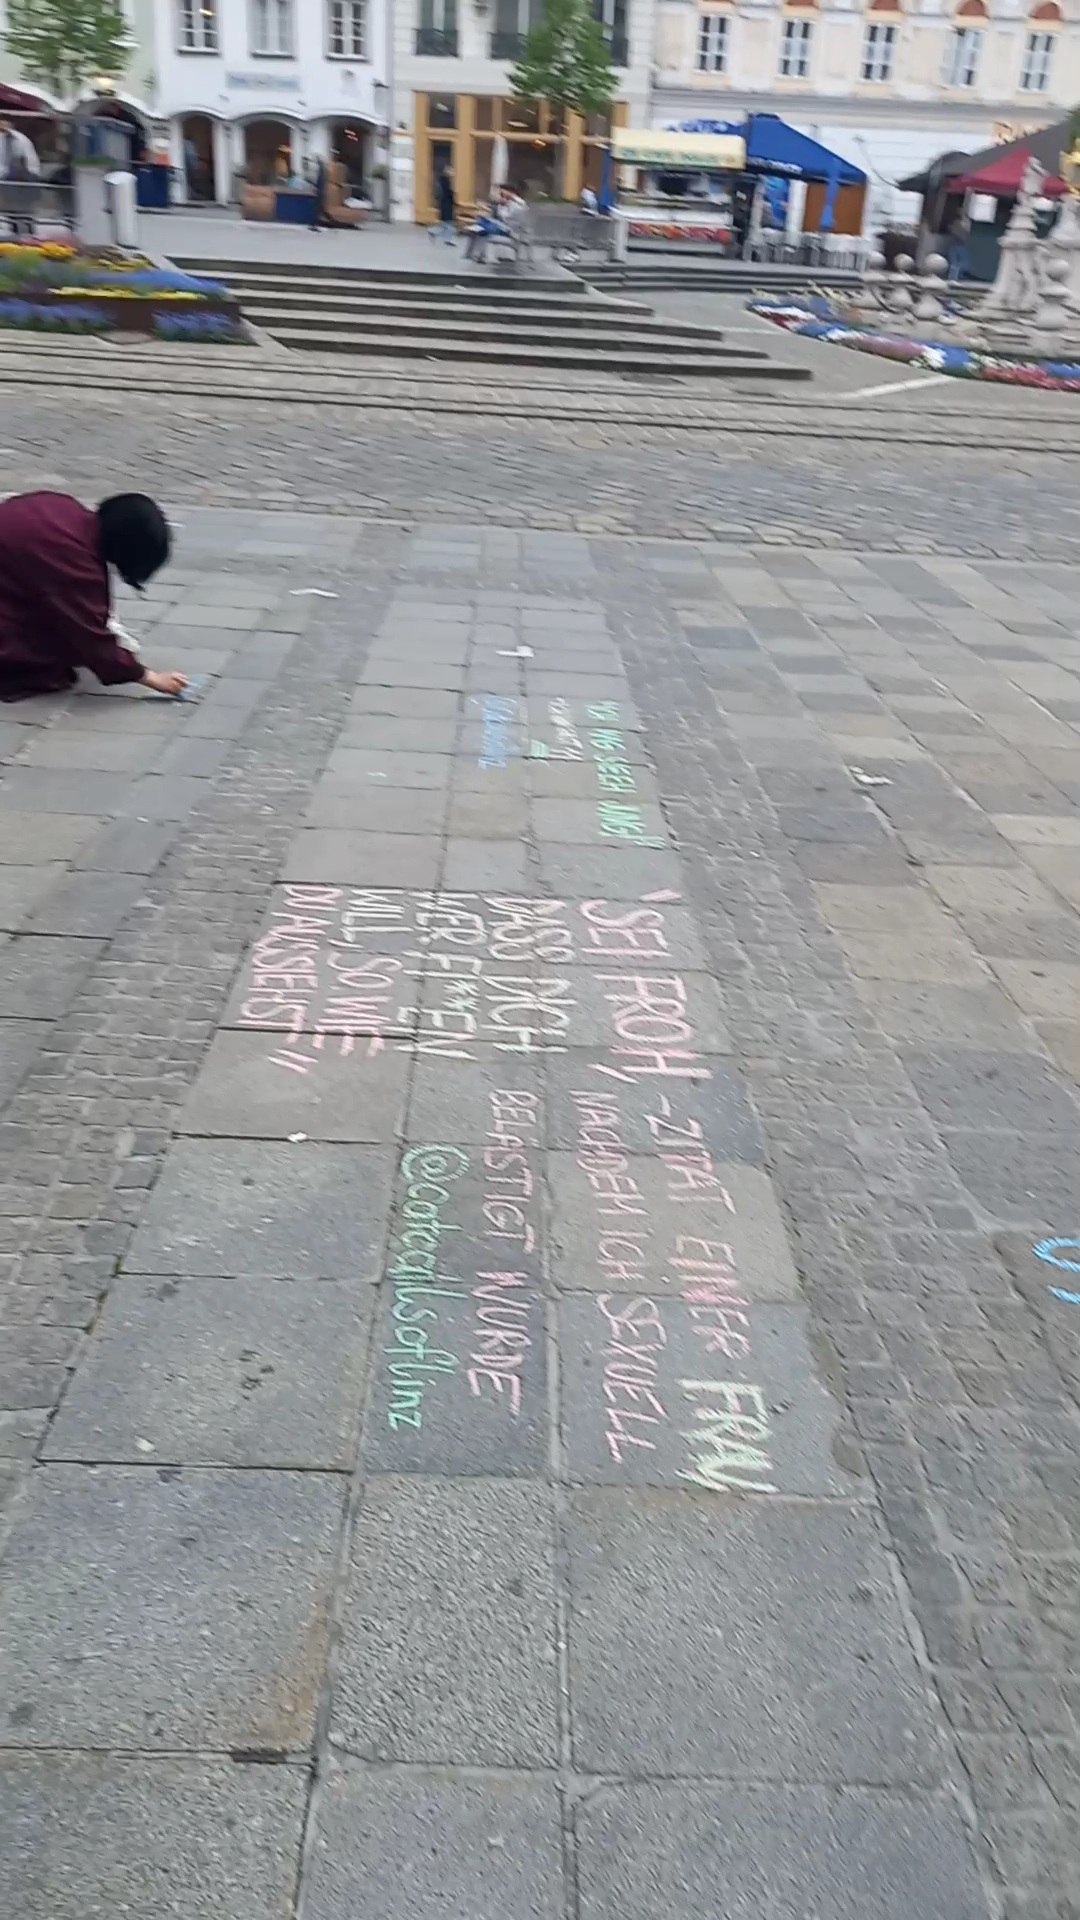 "SEI FROH,
DASS DICH
WER F**EN
WILL, SO WIE
DU AUSSIEHST"
-ZITAT EINER FRAU
NACHDEM ICH SEXUELL
BELÄSTIGT WURDE
@catcallsoflinz